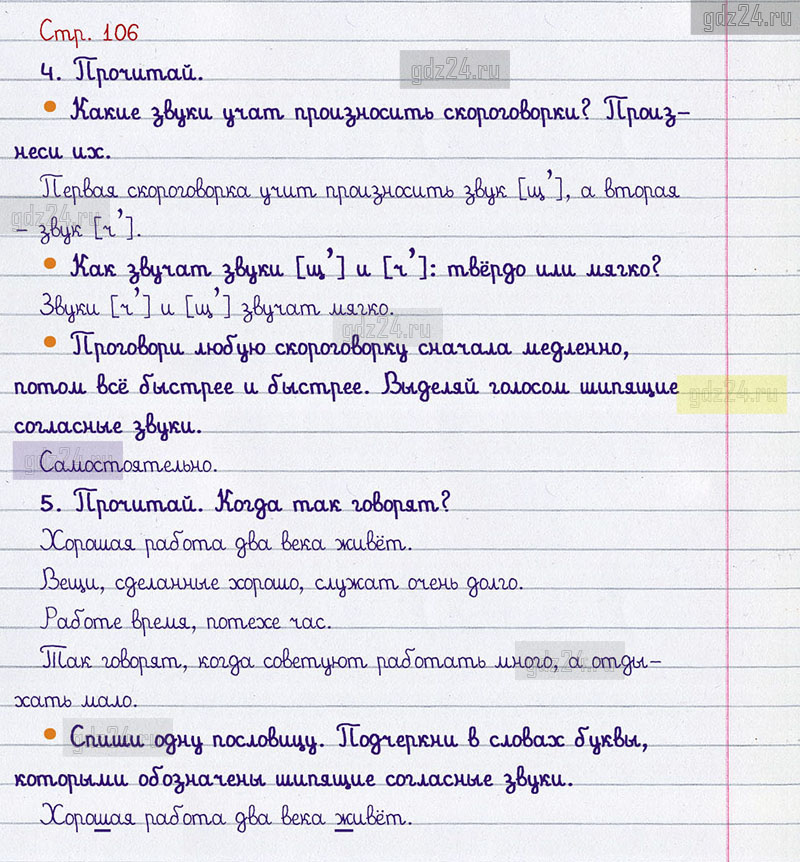 gdz24.ru
Стр. 106
4. Прочитай.
gdz24.ru
• Какие звуки учат произносить скороговорки? Произ-
неси их.
Первая скороговорка учит произносить звук [щ’], а вторая
gdz24.ru
– звук [ч’].
• Как звучат звуки [щ’] и [ч’]: твёрдо или мягко?
Звуки [ч’] и [щ’] звучат мягко.
gdz24.ru
• Проговори любую скороговорку сначала медленно,
потом всё быстрее и быстрее. Выделяй голосом шипящие
gdz24.ru
согласные звуки.
gdz24.ru
Самостоятельно.
5. Прочитай. Когда так говорят?
Хорошая работа два века живёт.
Вещи, сделанные хорошо, служат очень долго.
Работе время, потехе час.
Так говорят, когда советуют работать много, а отды-
gdz24.ru
хать мало.
gdz24.ru
• Спиши одну пословицу. Подчеркни в словах буквы,
которыми обозначены шипящие согласные звуки.
Хорошая работа два века живёт.